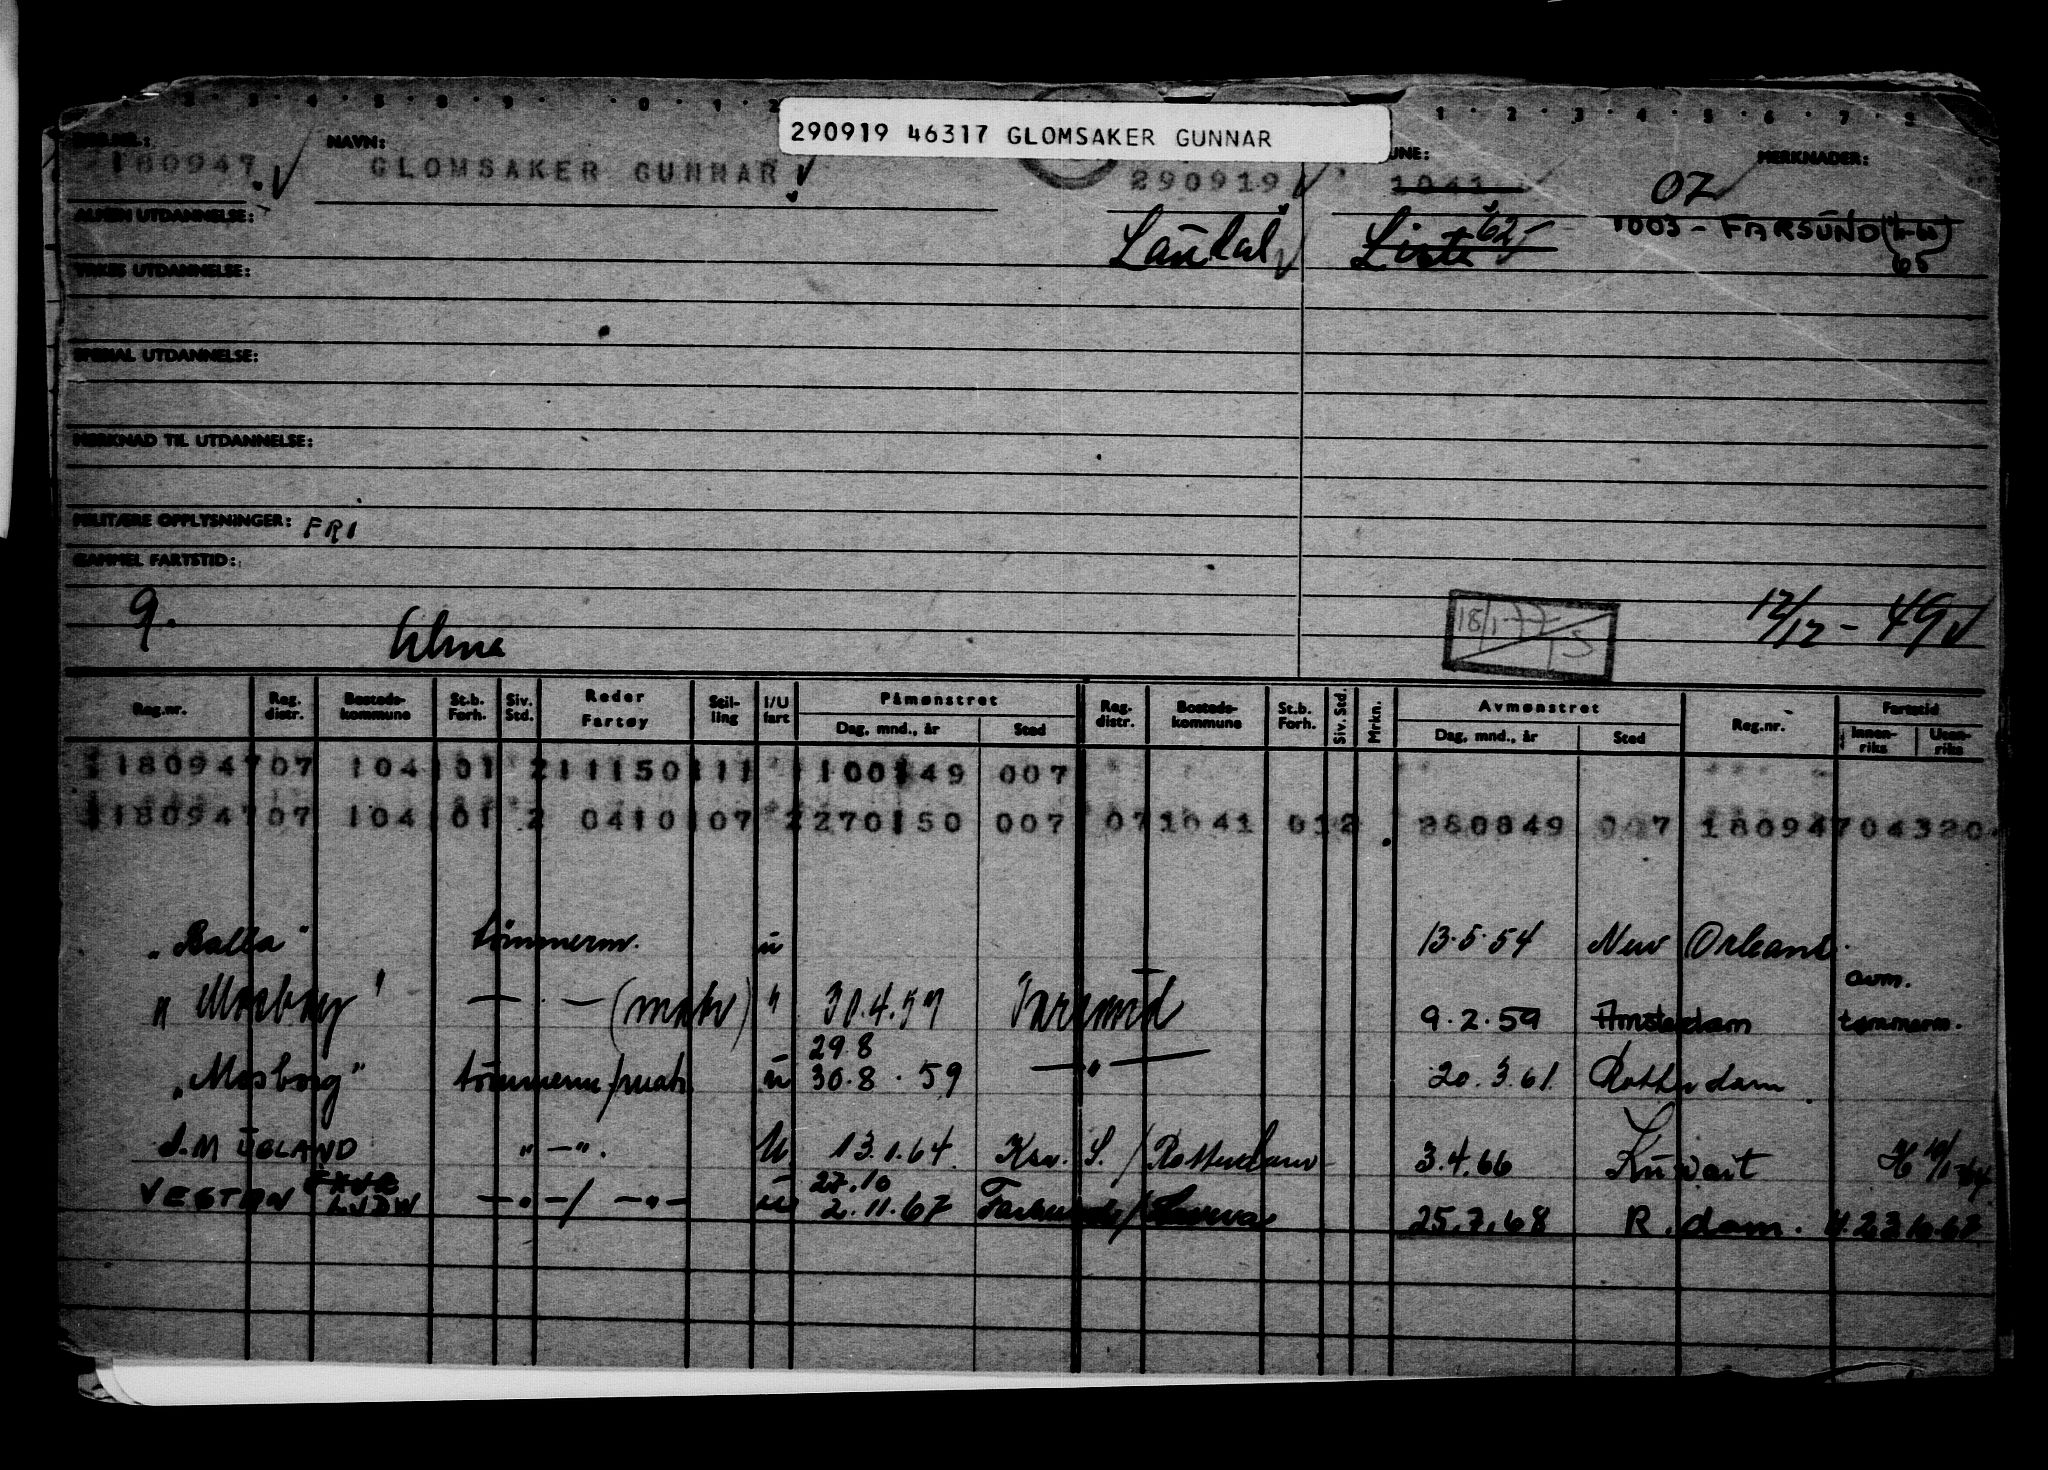 290919 46317 GLOMSAKER GUNNAR
NAVN: MERKNADER:
180947 GLOMSAKER GUNNAR 290919 1041 07
ALMEN UTDANNELSE: Laudal Lista 62 1003 - FARSUND 65
YRKES UTDANNELSE:
SPESIAL UTDANNELSE:
MERKNAD TIL UTDANNELSE:
MILITÆRE OPPLYSNINGER: FRI
GAMMEL FARTSTID:
9. Alma 18/1-77 S 12/12 - 49
Reg.nr. Reg. distr. Bosteds-kommune St.b. Forh. Siv. Std. Reder Fartøy Stil-ling I/U fart Påmønstret Dag, mnd., år Sted Reg. distr. Bosteds-kommune St.b. Forh. Siv. Std. Mrkn. Avmønstret Dag, mnd., år Sted Reg.nr. Fartstid Innen-riks Uten-riks
180947 07 104 101 2 11150 111 100149 007
180947 07 104 101 2 0410 107 2 270150 007 07 1041 012 280849 007 180947 04320
"Balla" tömmerm. u 13.5.54 New Orleans.
"Mosborg" — . — (matr) " 30.4.57 Farsund 9.2.59 Amsterdam avm. tømmerm.
"Mosborg" tömmerm/matr. u 29.8 30.8.59 — " — 20.3.61 Rotterdam
J.M UGLAND " — ". U 13.1.64 Krs. S. / Rotterdam 3.4.66 Kuwait
VESTAN LVDW — " — / — " — u 27.10 2.11.67 25.7.68 R.dam.